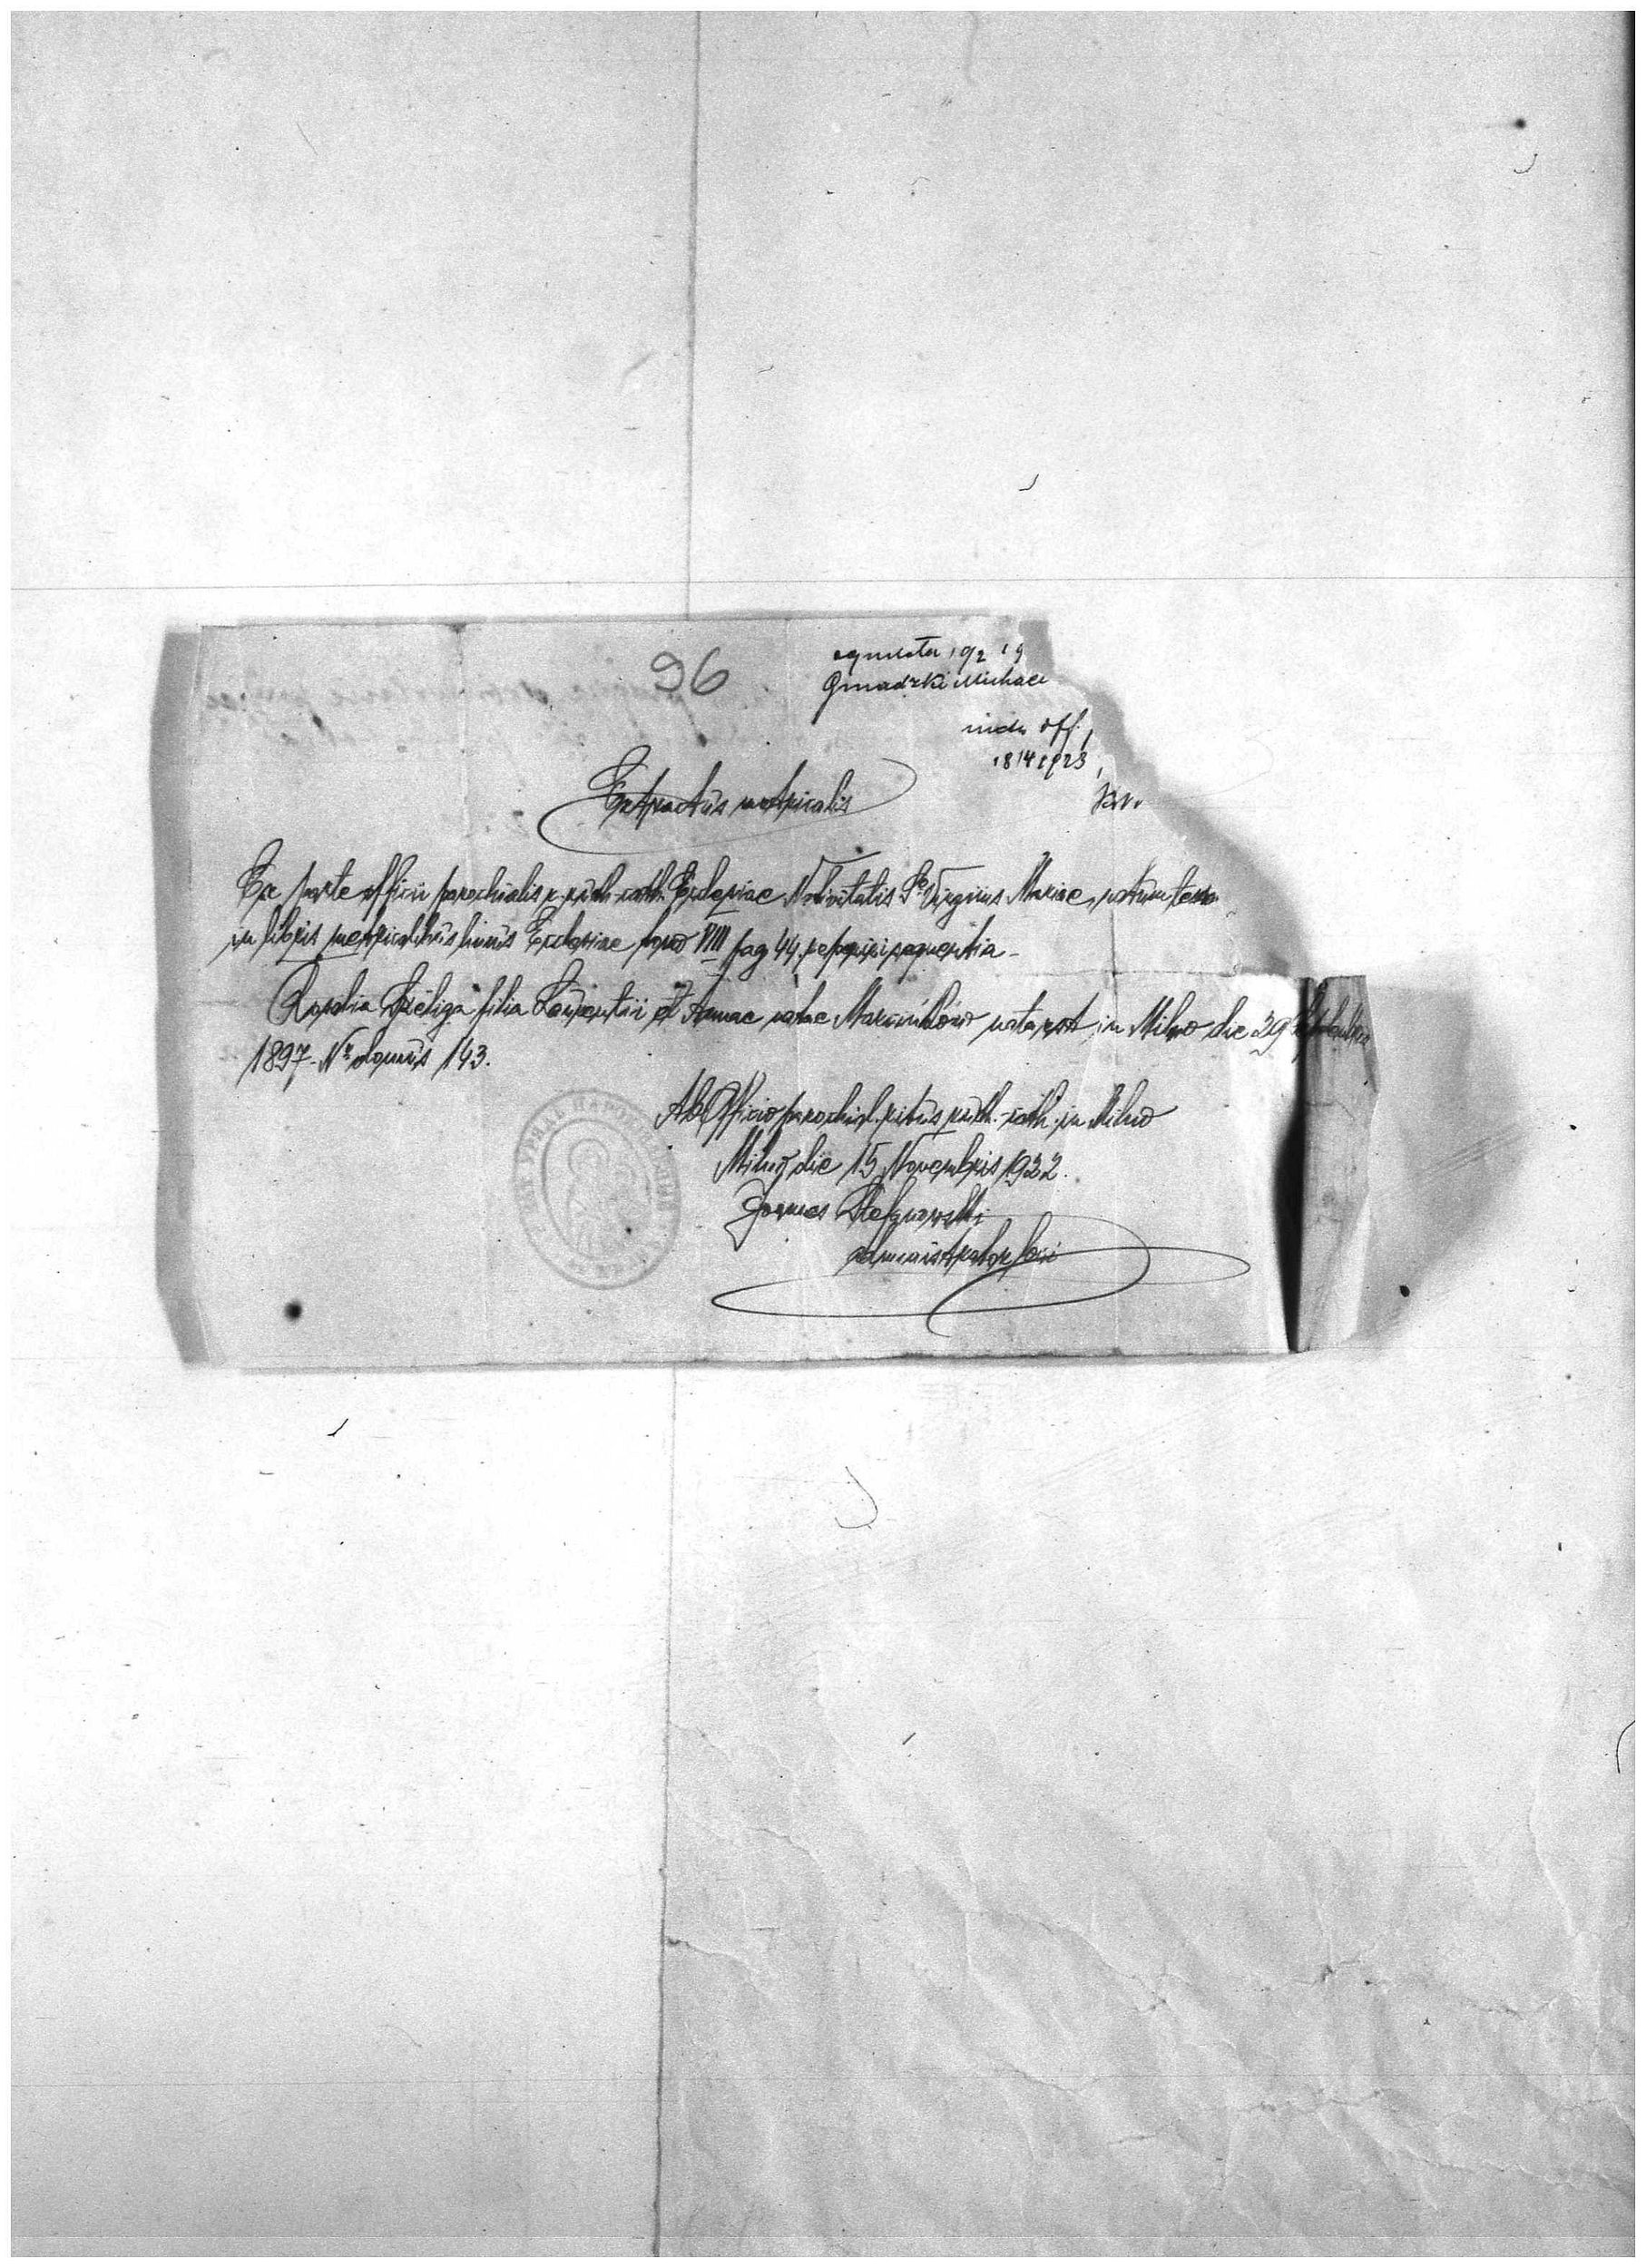 96
Gmadzki Michael
off.
18/4 1923
Extractus metricalis
Ex parte officii parochialis r. ruth. cath. Ecclesiae Nativitatis Virginis Mariae, notum
in libris metricalibus huius Ecclesiae tomo VIII pag 44. reperiri sequentia -
Rosalia Szeliga filia Laurentii et Annae natae Marcinków nata est in Milno die 29 Septembris
1897. Nr domus 143.
Ab Officio parochial. ritus ruth. cath. in Milno
Milno, die 15 Novembris 1922.
Joannes
administrator loci